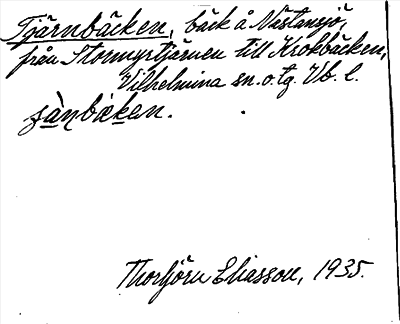 Tjärnbäcken, bäck å Nästansjö,
från Stormyrtjärnen till Krokbäcken,
Vilhelmina sn. o. tg. Vb. l.
Thorbjörn Eliasson, 1935.